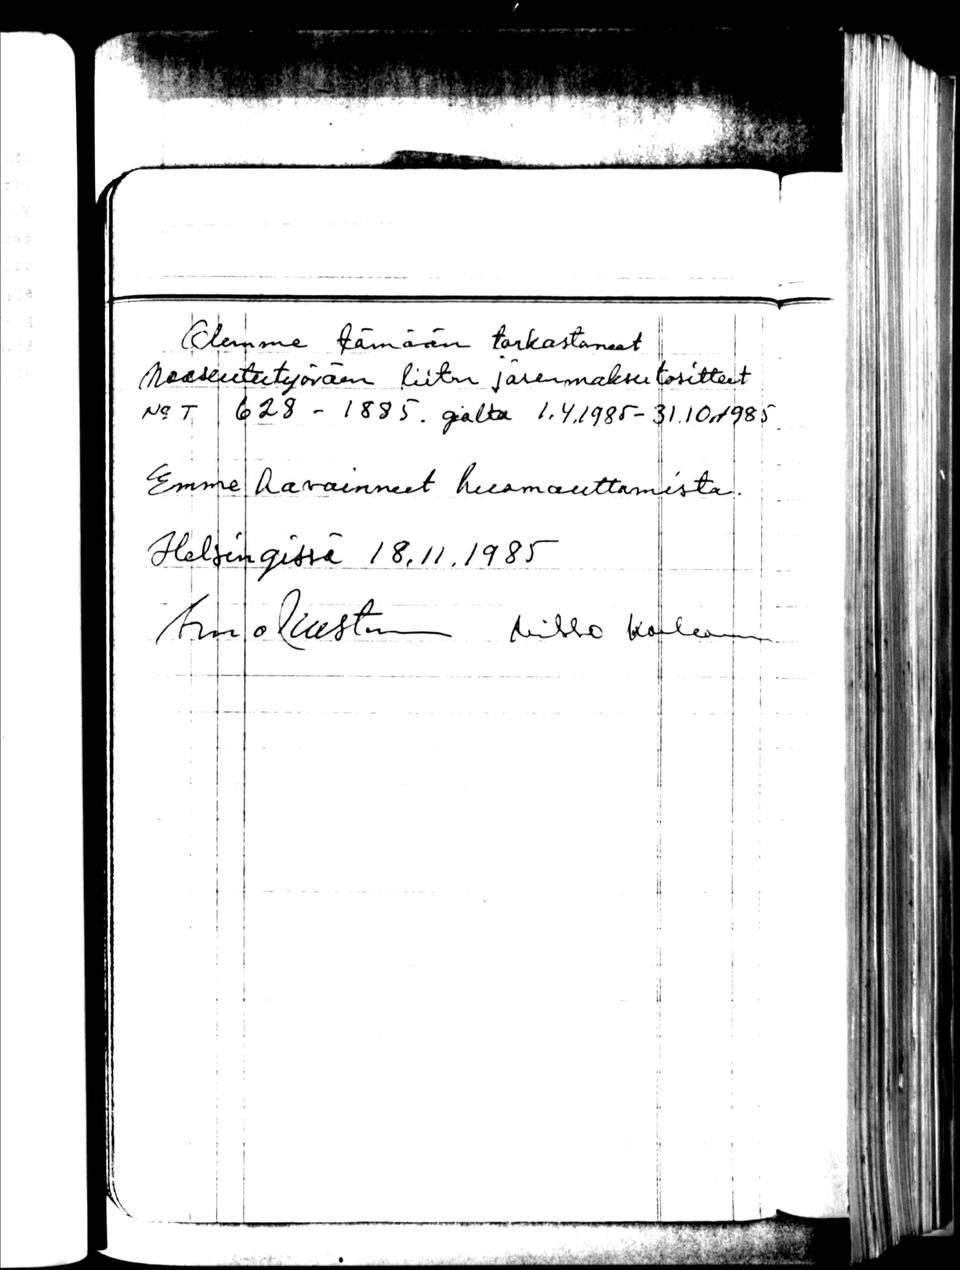 Olemme tänään tarkastaneet
Maaseututyöväen liiton jäsenmaksutositteet
No T 628 - 1885. ajalta 1.4.1985 - 31.10.1985.
Emme havainneet huomauttamista.
Helsingissä 18.11.1985